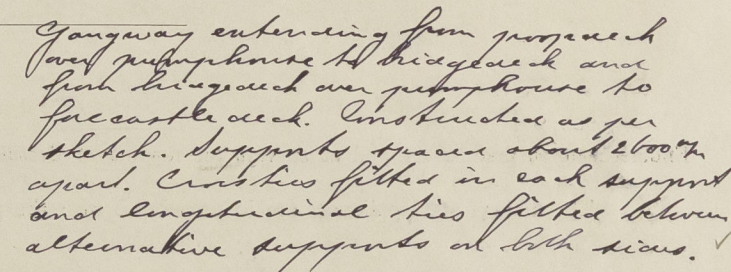 Gangway extending from poopdeck
over pumphouse to bridgedeck and
from bridgedeck over pumphouse to
forecastle deck. Constructed as per
sketch. Supports spaced about 2600 m/m
apart. Crossties fitted in each support
and longitudinal ties fitted between
alternative supports on both sides.